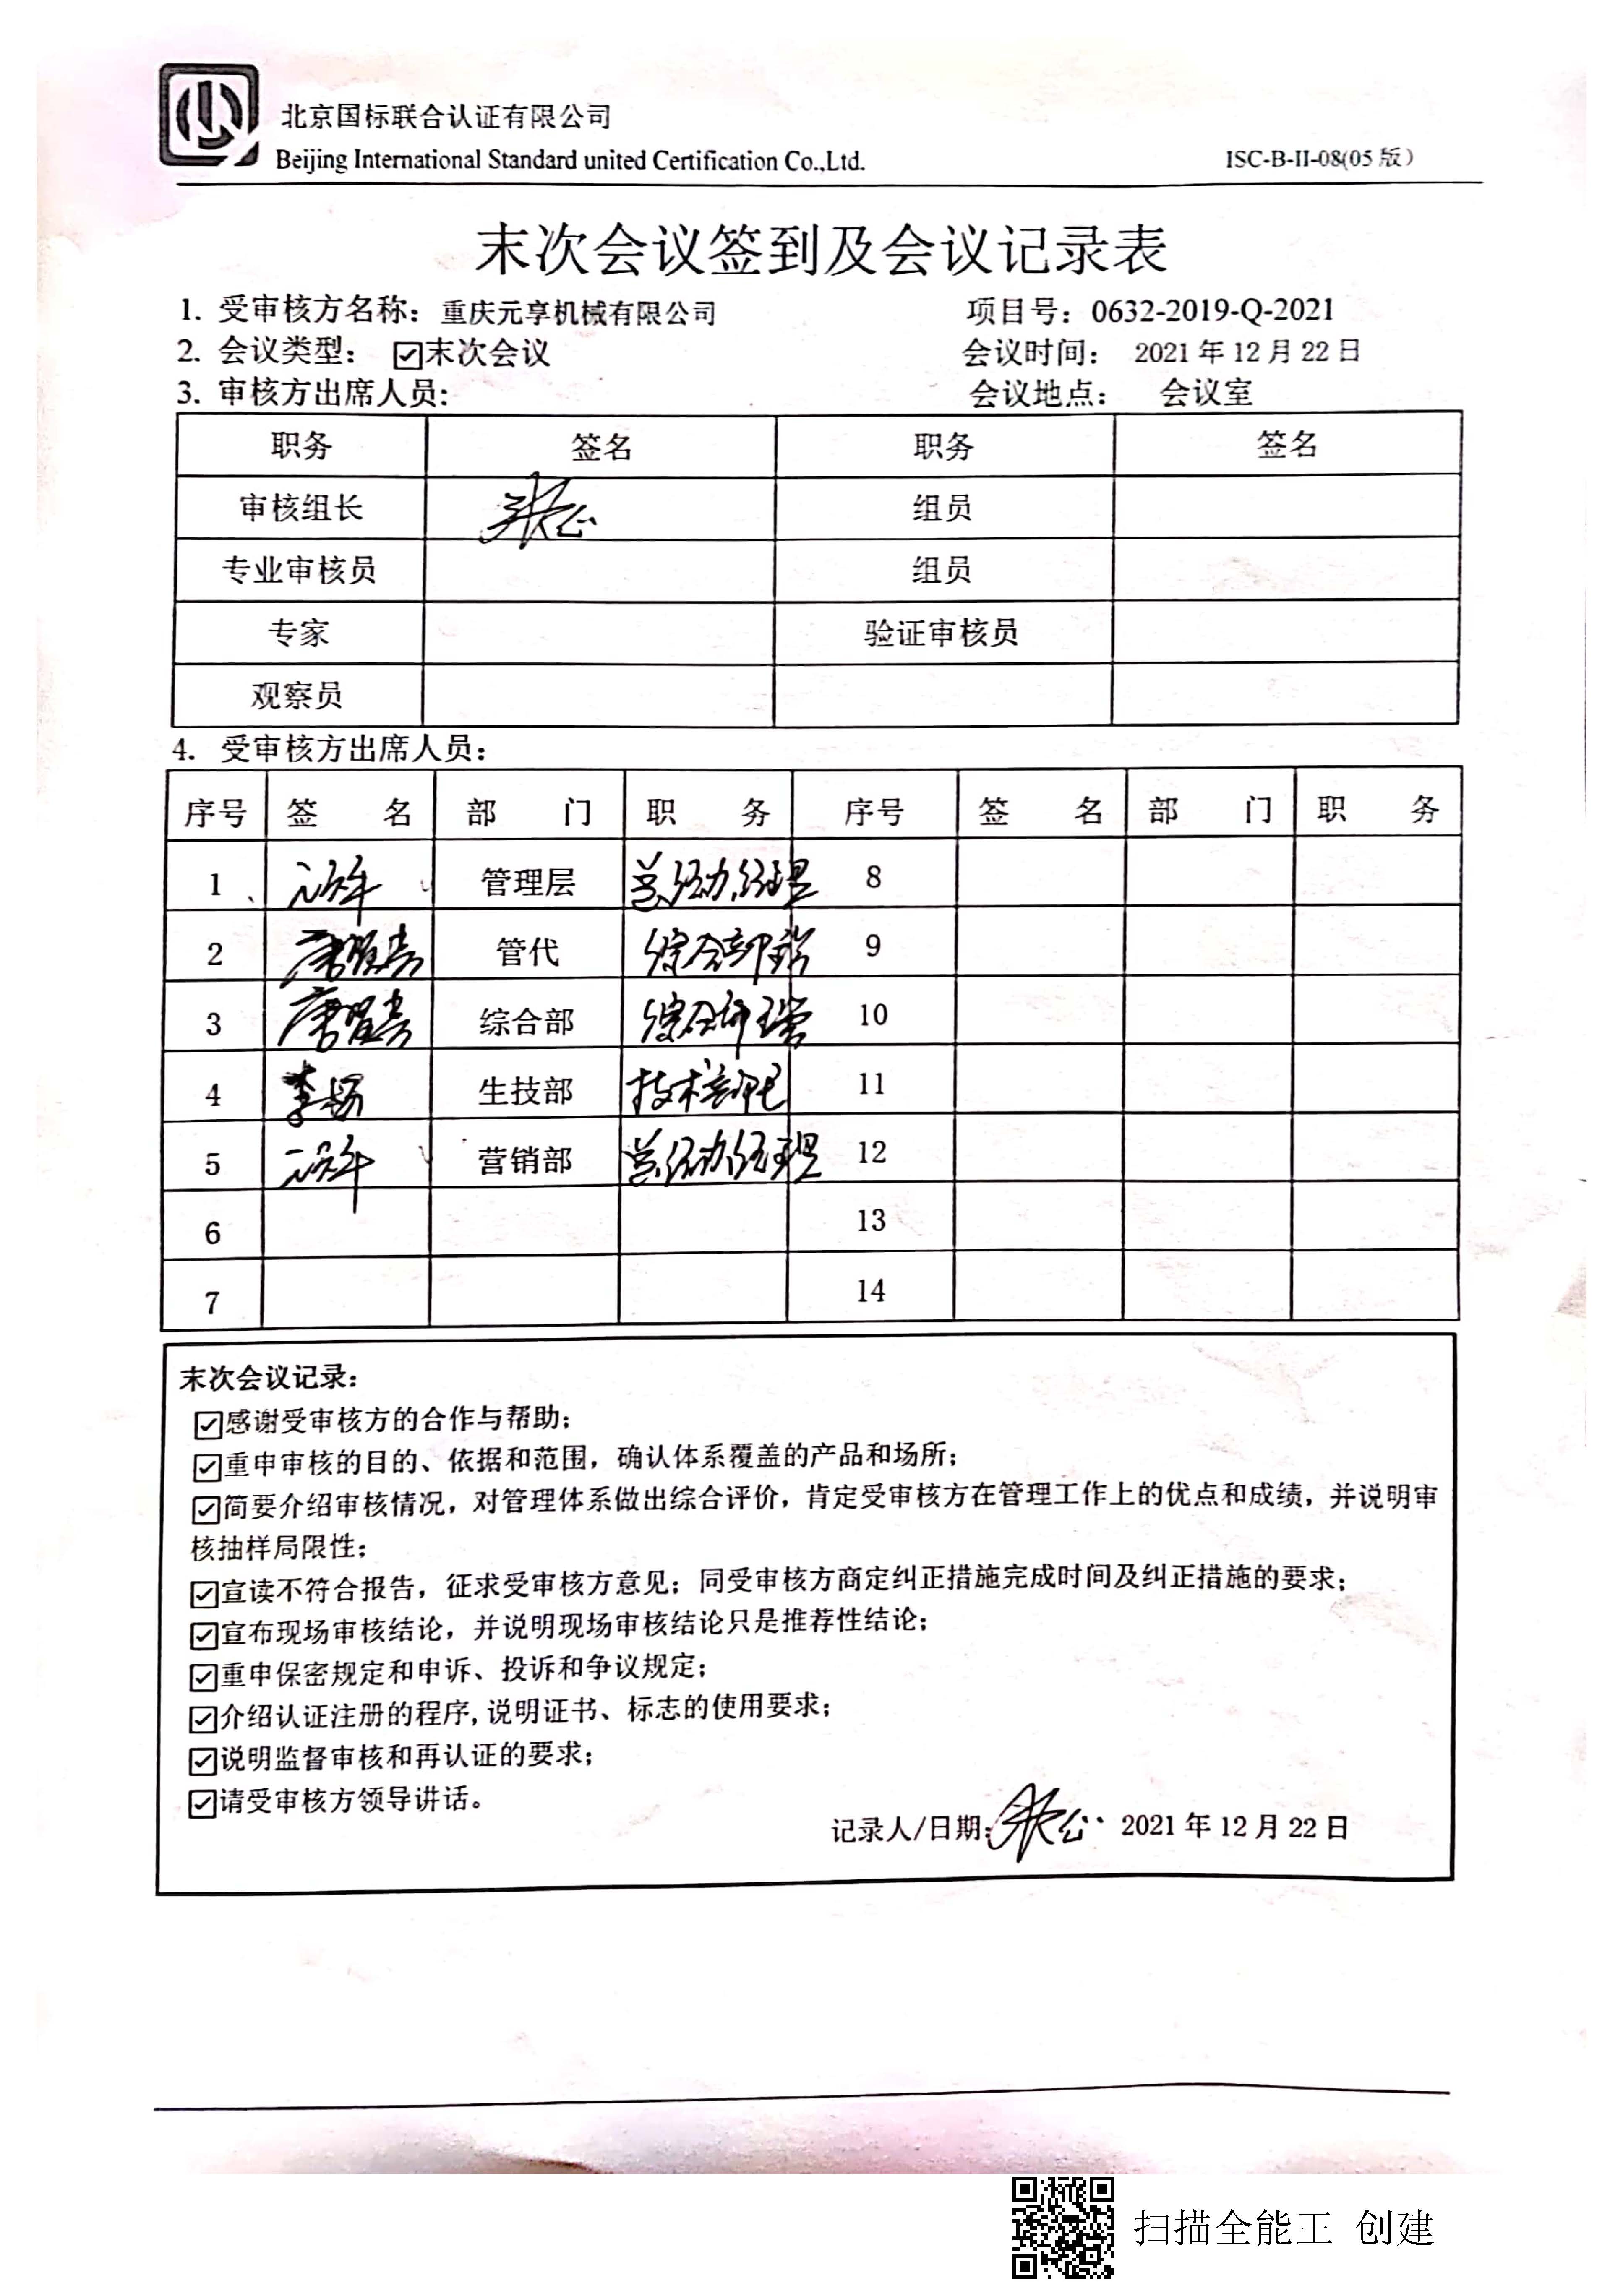 北京国标联合认证有限公司
Beijing International Standard united Certification Co.,Ltd.
ISC-B-II-08(05版)
末次会议签到及会议记录表
1. 受审核方名称：重庆元享机械有限公司 项目号：0632-2019-Q-2021
2. 会议类型：☑末次会议 会议时间：2021年12月22日
3. 审核方出席人员： 会议地点：会议室
职务 签名 职务 签名
审核组长 组员
专业审核员 组员
专家 验证审核员
观察员
4. 受审核方出席人员：
序号 签名 部门 职务 序号 签名 部门 职务
1 管理层 总经办经理 8
2 管代 综合部 9
3 综合部 综合部 10
4 李 生技部 技术部 11
5 营销部 总经办经理 12
6 13
7 14
末次会议记录：
☑感谢受审核方的合作与帮助；
☑重申审核的目的、依据和范围，确认体系覆盖的产品和场所；
☑简要介绍审核情况，对管理体系做出综合评价，肯定受审核方在管理工作上的优点和成绩，并说明审
核抽样局限性；
☑宣读不符合报告，征求受审核方意见；同受审核方商定纠正措施完成时间及纠正措施的要求；
☑宣布现场审核结论，并说明现场审核结论只是推荐性结论；
☑重申保密规定和申诉、投诉和争议规定；
☑介绍认证注册的程序,说明证书、标志的使用要求；
☑说明监督审核和再认证的要求；
☑请受审核方领导讲话。
记录人/日期： 2021年12月22日
扫描全能王 创建